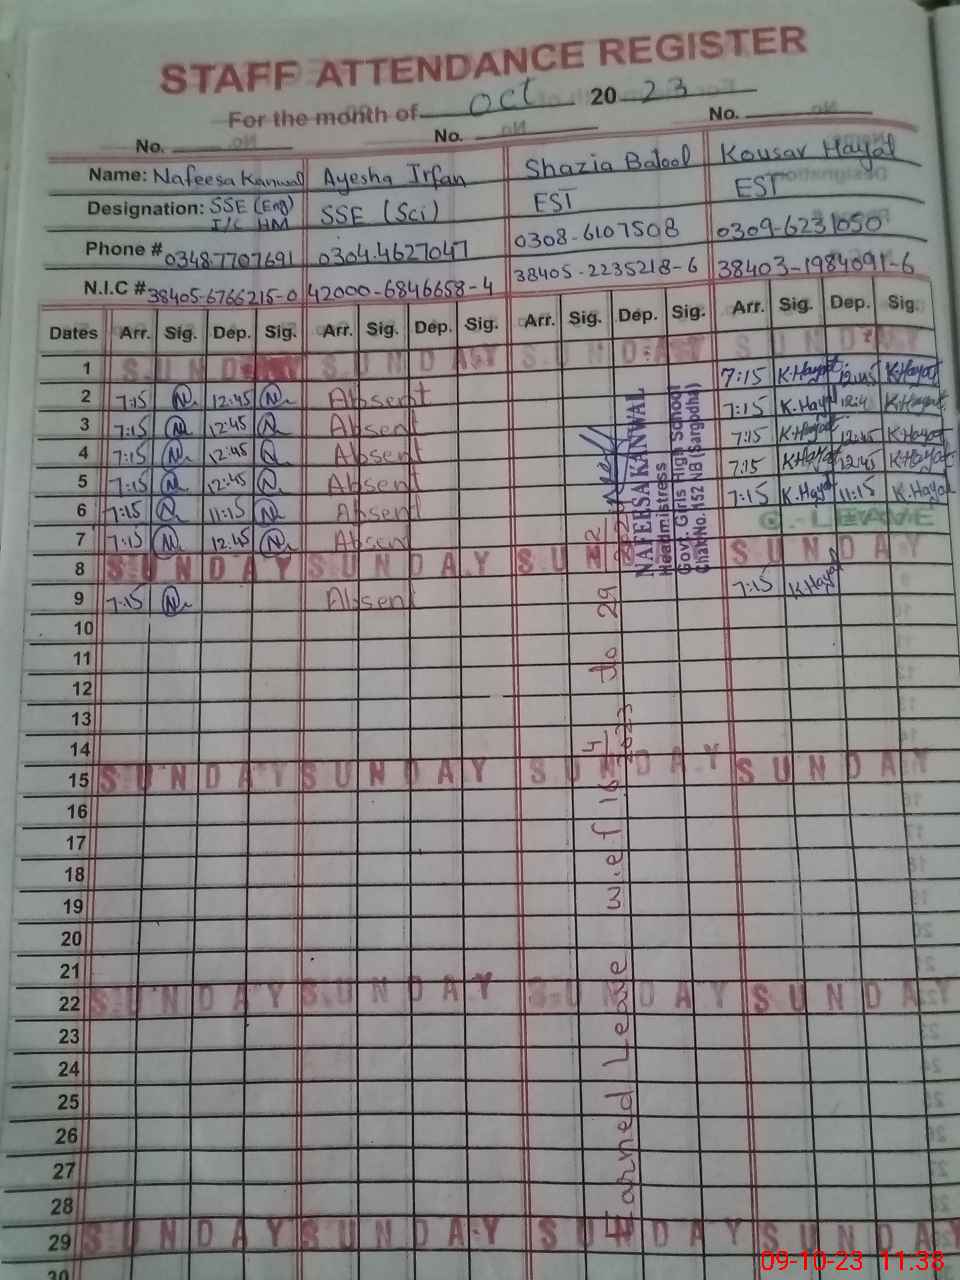 STAFF ATTENDANCE REGISTER
For the month of Oct 2023
No. No. No.
Name: Nafeesa Kanwal Ayesha Irfan Shazia Batool Kousar Hayat
Designation: SSE (Eng) SSE (Sci) EST EST
I/C HM
Phone # 0348-7707691 0304-4627047 0308-6107508 0309-6231050
N.I.C # 38405-6766215-0 42000-6846658-4 38405-2235218-6 38403-1984091-6
Dates Arr. Sig. Dep. Sig. Arr. Sig. Dep. Sig. Arr. Sig. Dep. Sig. Arr. Sig. Dep. Sig.
1 SUNDAY SUNDAY SUNDAY SUNDAY
2 7:15 N 12:45 N Absent 7:15 K.Hayat 12:45 K.Hayat
3 7:15 N 12:45 N Absent 7:15 K.Hayat K.Hayat
4 7:15 N 12:45 N Absent 7:15 K.Hayat 12:45 K.Hayat
5 7:15 N 12:45 N Absent 7:15 K.Hayat 12:45 K.Hayat
6 7:15 N 11:15 N Absent 7:15 K.Hayat 11:15 K.Hayat
7 7:15 N 12:45 N Absent C.-LEAVE
8 SUNDAY SUNDAY SUN SUNDAY
9 7:15 N Absent 7:15 K.Hayat
10
11
12
13
14
15 SUNDAY SUNDAY SUNDAY SUNDAY
16
17
18
19
20
21
22 SUNDAY SUNDAY SUNDAY SUNDAY
23
24
25
26
27
28
29 SUNDAY SUNDAY SUNDAY SUNDAY
30
Earned Leave w.e.f 16/4/2023 to 29
NAFEESA KANWAL
Headmistress
Govt. Girls High School
Chak No. 152 NB (Sargodha)
09-10-23 11.38